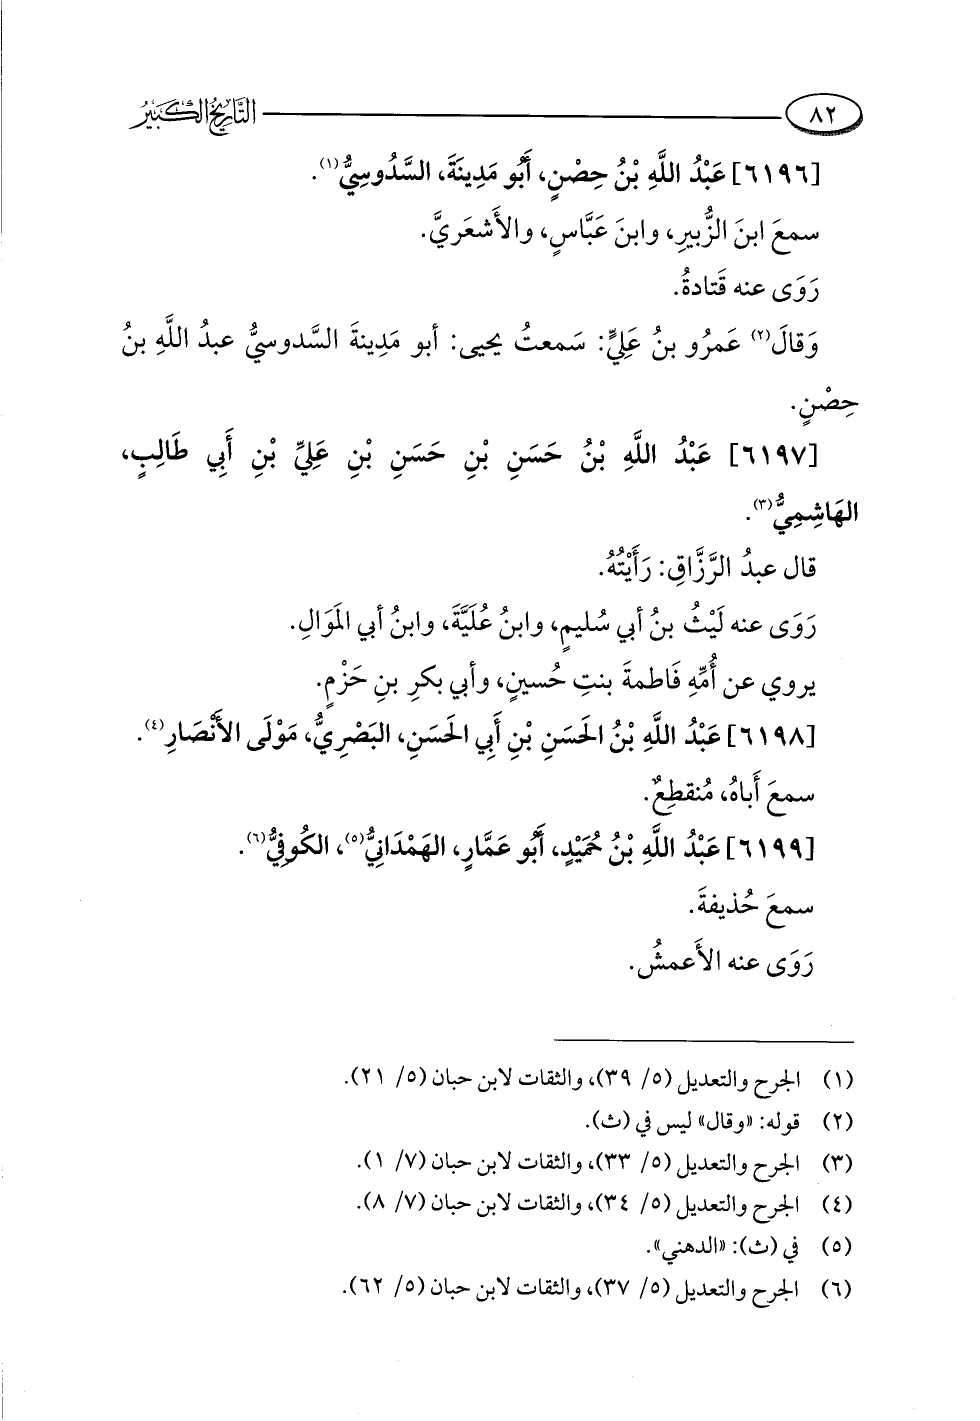 ٨٢ التاريخ الكبير
[٦١٩٦] عَبْدُ اللَّهِ بْنُ حِصْنٍ، أَبُو مَدِينَةَ، السَّدُوسِيُّ(١).
سمعَ ابنَ الزُّبيرِ، وابنَ عَبَّاسٍ، والأَشعَريَّ.
رَوَى عنه قَتادةُ.
وَقالَ(٢) عَمرُو بنُ عَلِيٍّ: سَمعتُ يحيى: أبو مَدِينةَ السَّدوسيُّ عبدُ اللَّهِ بنُ
حِصْنٍ.
[٦١٩٧] عَبْدُ اللَّهِ بْنُ حَسَنِ بْنِ حَسَنِ بْنِ عَلِيِّ بْنِ أَبِي طَالِبٍ،
الهَاشِمِيُّ(٣).
قال عبدُ الرَّزَّاقِ: رَأَيْتُهُ.
رَوَى عنه لَيْثُ بنُ أبي سُليمٍ، وابنُ عُلَيَّةَ، وابنُ أبي المَوَالِ.
يروي عن أُمِّهِ فَاطمةَ بنتِ حُسينٍ، وأبي بكرِ بنِ حَزْمٍ.
[٦١٩٨] عَبْدُ اللَّهِ بْنُ الحَسَنِ بْنِ أَبِي الحَسَنِ، البَصْرِيُّ، مَوْلَى الأَنْصَارِ(٤).
سمعَ أَباهُ، مُنقطِعٌ.
[٦١٩٩] عَبْدُ اللَّهِ بْنُ حُمَيْدٍ، أَبُو عَمَّارٍ، الهَمْدَانِيُّ(٥)، الكُوفِيُّ(٦).
سمعَ حُذيفةَ.
رَوَى عنه الأَعمشُ.
(١) الجرح والتعديل (٥/ ٣٩)، والثقات لابن حبان (٥/ ٢١).
(٢) قوله: «وقال» ليس في (ث).
(٣) الجرح والتعديل (٥/ ٣٣)، والثقات لابن حبان (٧/ ١).
(٤) الجرح والتعديل (٥/ ٣٤)، والثقات لابن حبان (٧/ ٨).
(٥) في (ث): «الدهني».
(٦) الجرح والتعديل (٥/ ٣٧)، والثقات لابن حبان (٥/ ٦٢).